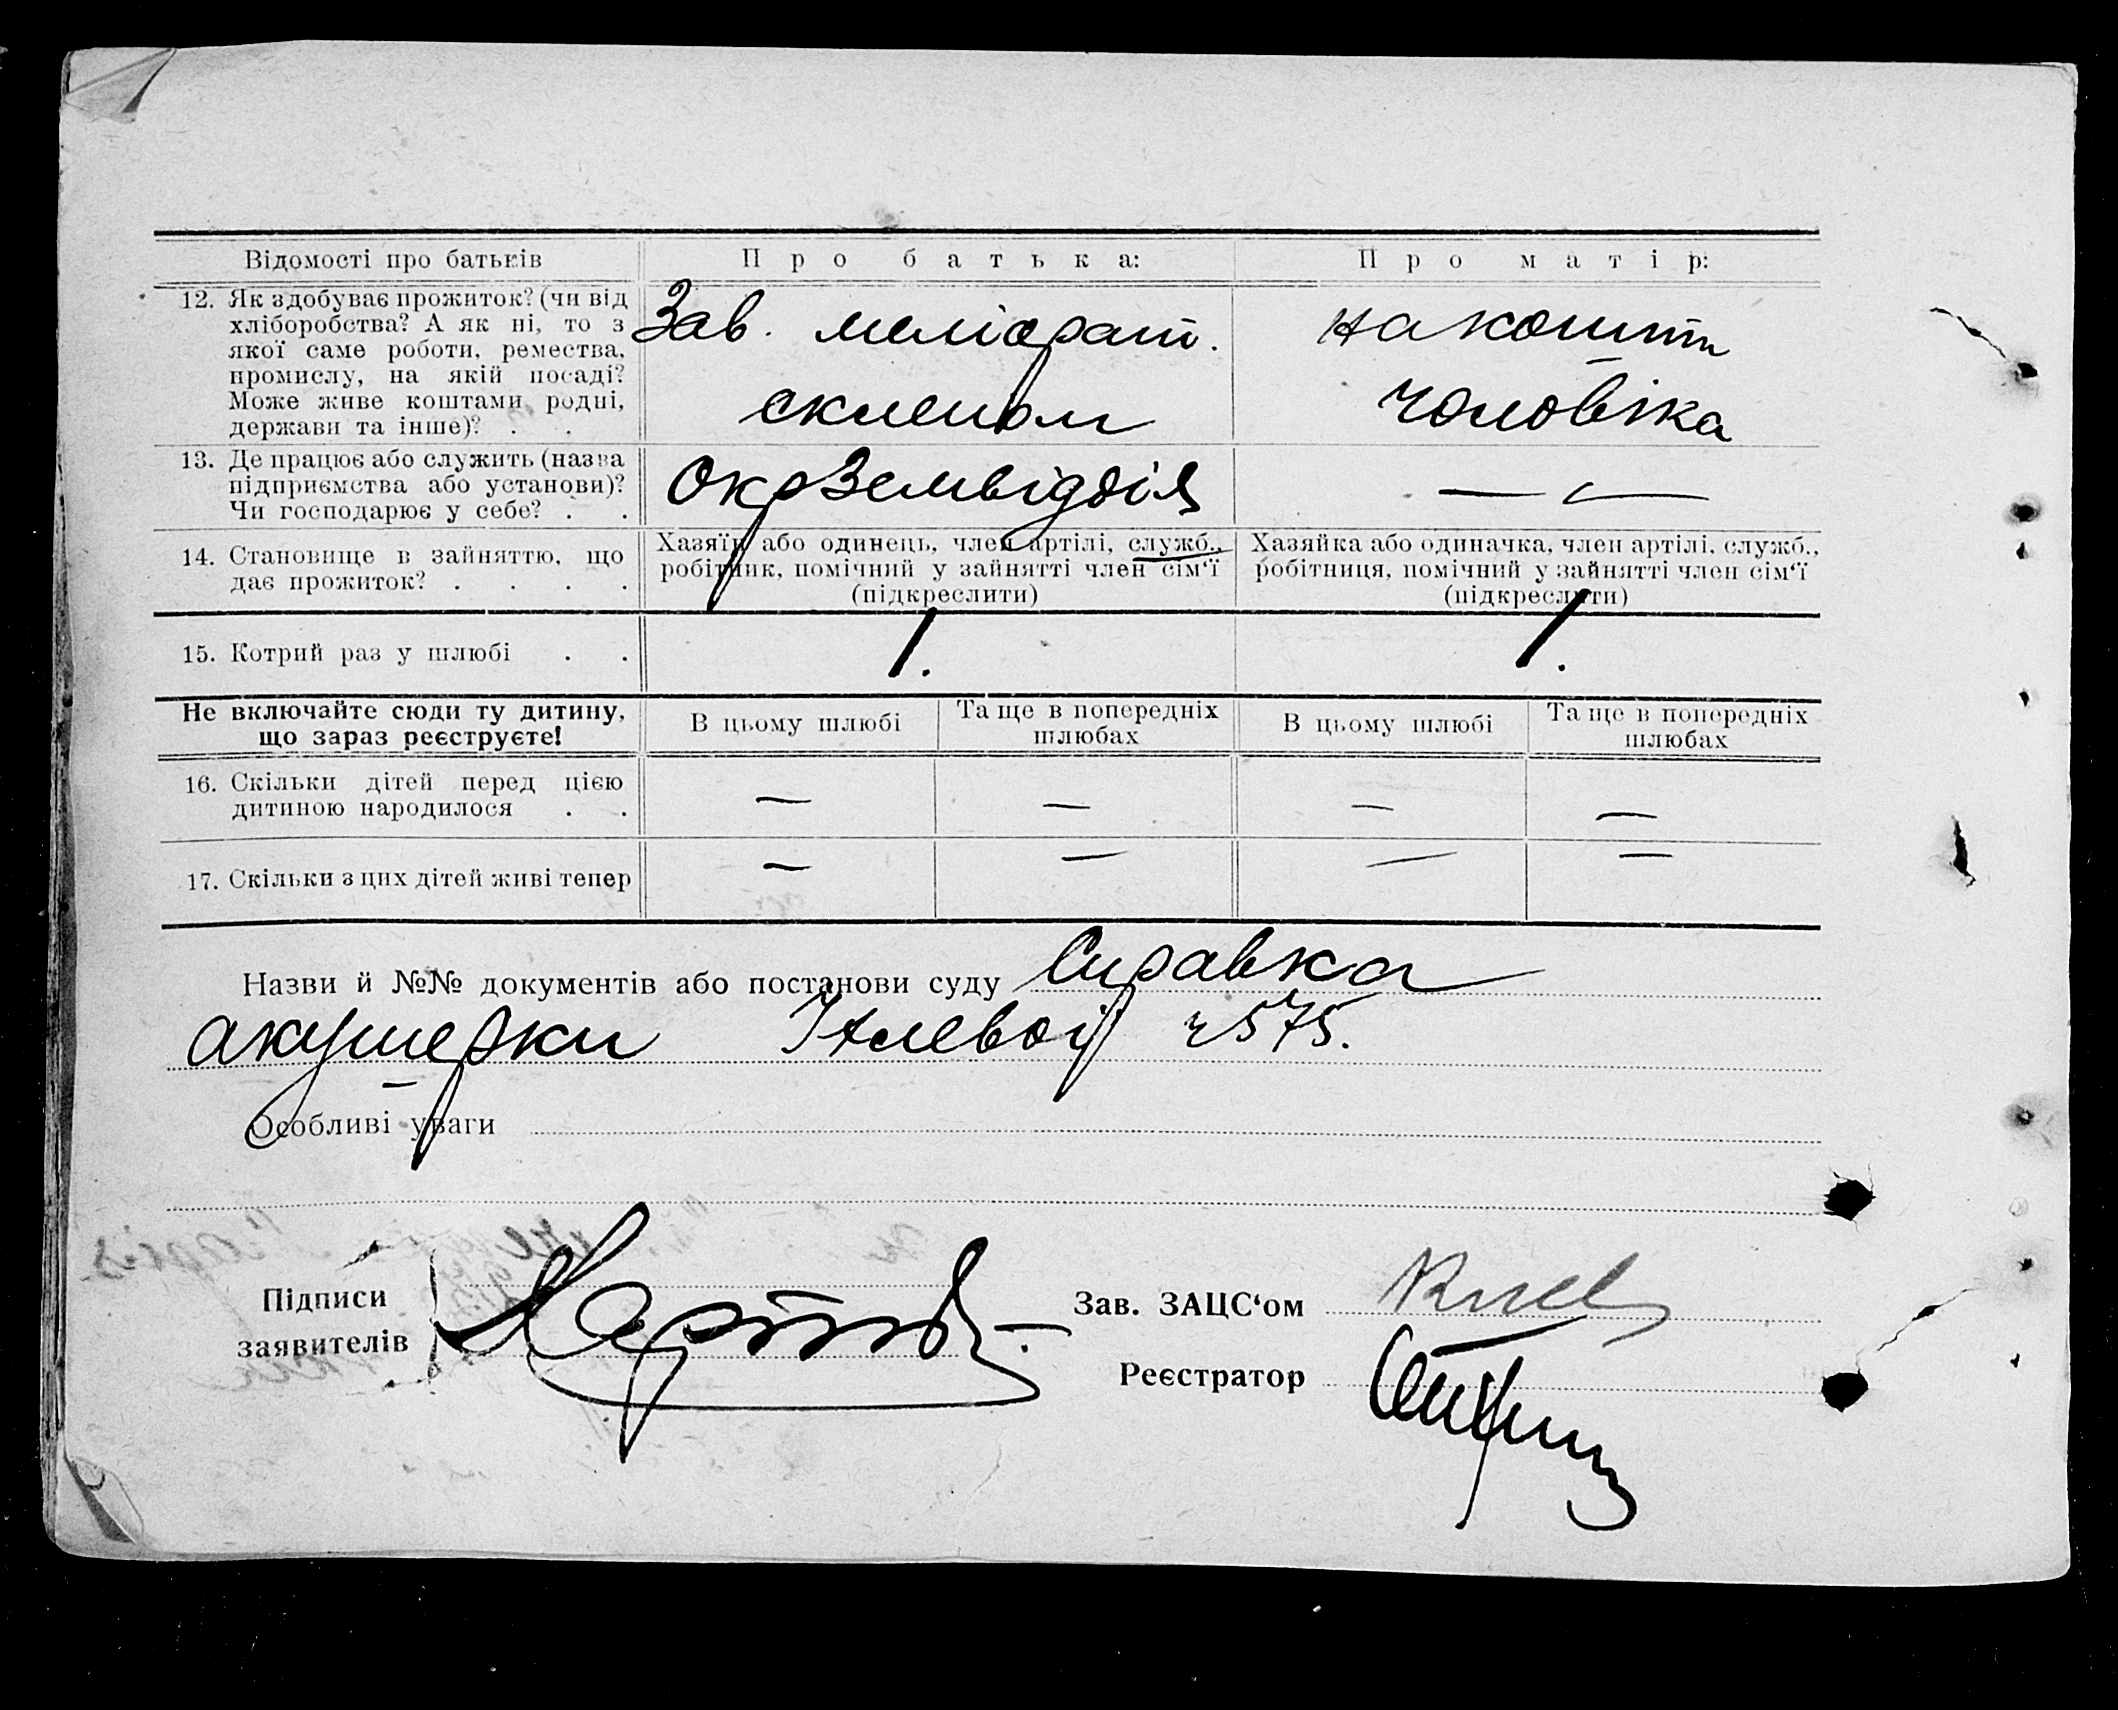 Відомості про батьків
Про батька:
Про матір:
12. Як здобуває прожиток? (чи від
хліборобства? А як ні, то з
якої саме роботи, ремества,
промислу, на якій посаді?
Може живе коштами родні,
держави та інше)? . .
Зав. меліорат.
склепом
на кошти
чоловіка
13. Де працює або служить (назва
підприємства або установи)?
Чи господарює у себе? . .
ОкрЗемвідділ
— —
14. Становище в зайняттю, що
дає прожиток? . . . .
Хазяїн або одинець, член артілі, служб.,
робітник, помічний у зайнятті член сім‘ї
(підкреслити)
Хазяйка або одиначка, член артілі, служб.,
робітниця, помічний у зайнятті член сім‘ї
(підкреслити)
15. Котрий раз у шлюбі . .
1.
1.
Не включайте сюди ту дитину,
що зараз реєструєте!
В цьому шлюбі
Та ще в попередніх
шлюбах
В цьому шлюбі
Та ще в попередніх
шлюбах
16. Скільки дітей перед цією
дитиною народилося . .
— — — —
17. Скільки з цих дітей живі тепер
— — — —
Назви й №№ документів або постанови суду Справка
акушерки ч575.
Особливі уваги
Підписи
заявителів
Зав. ЗАЦС‘ом
Реєстратор